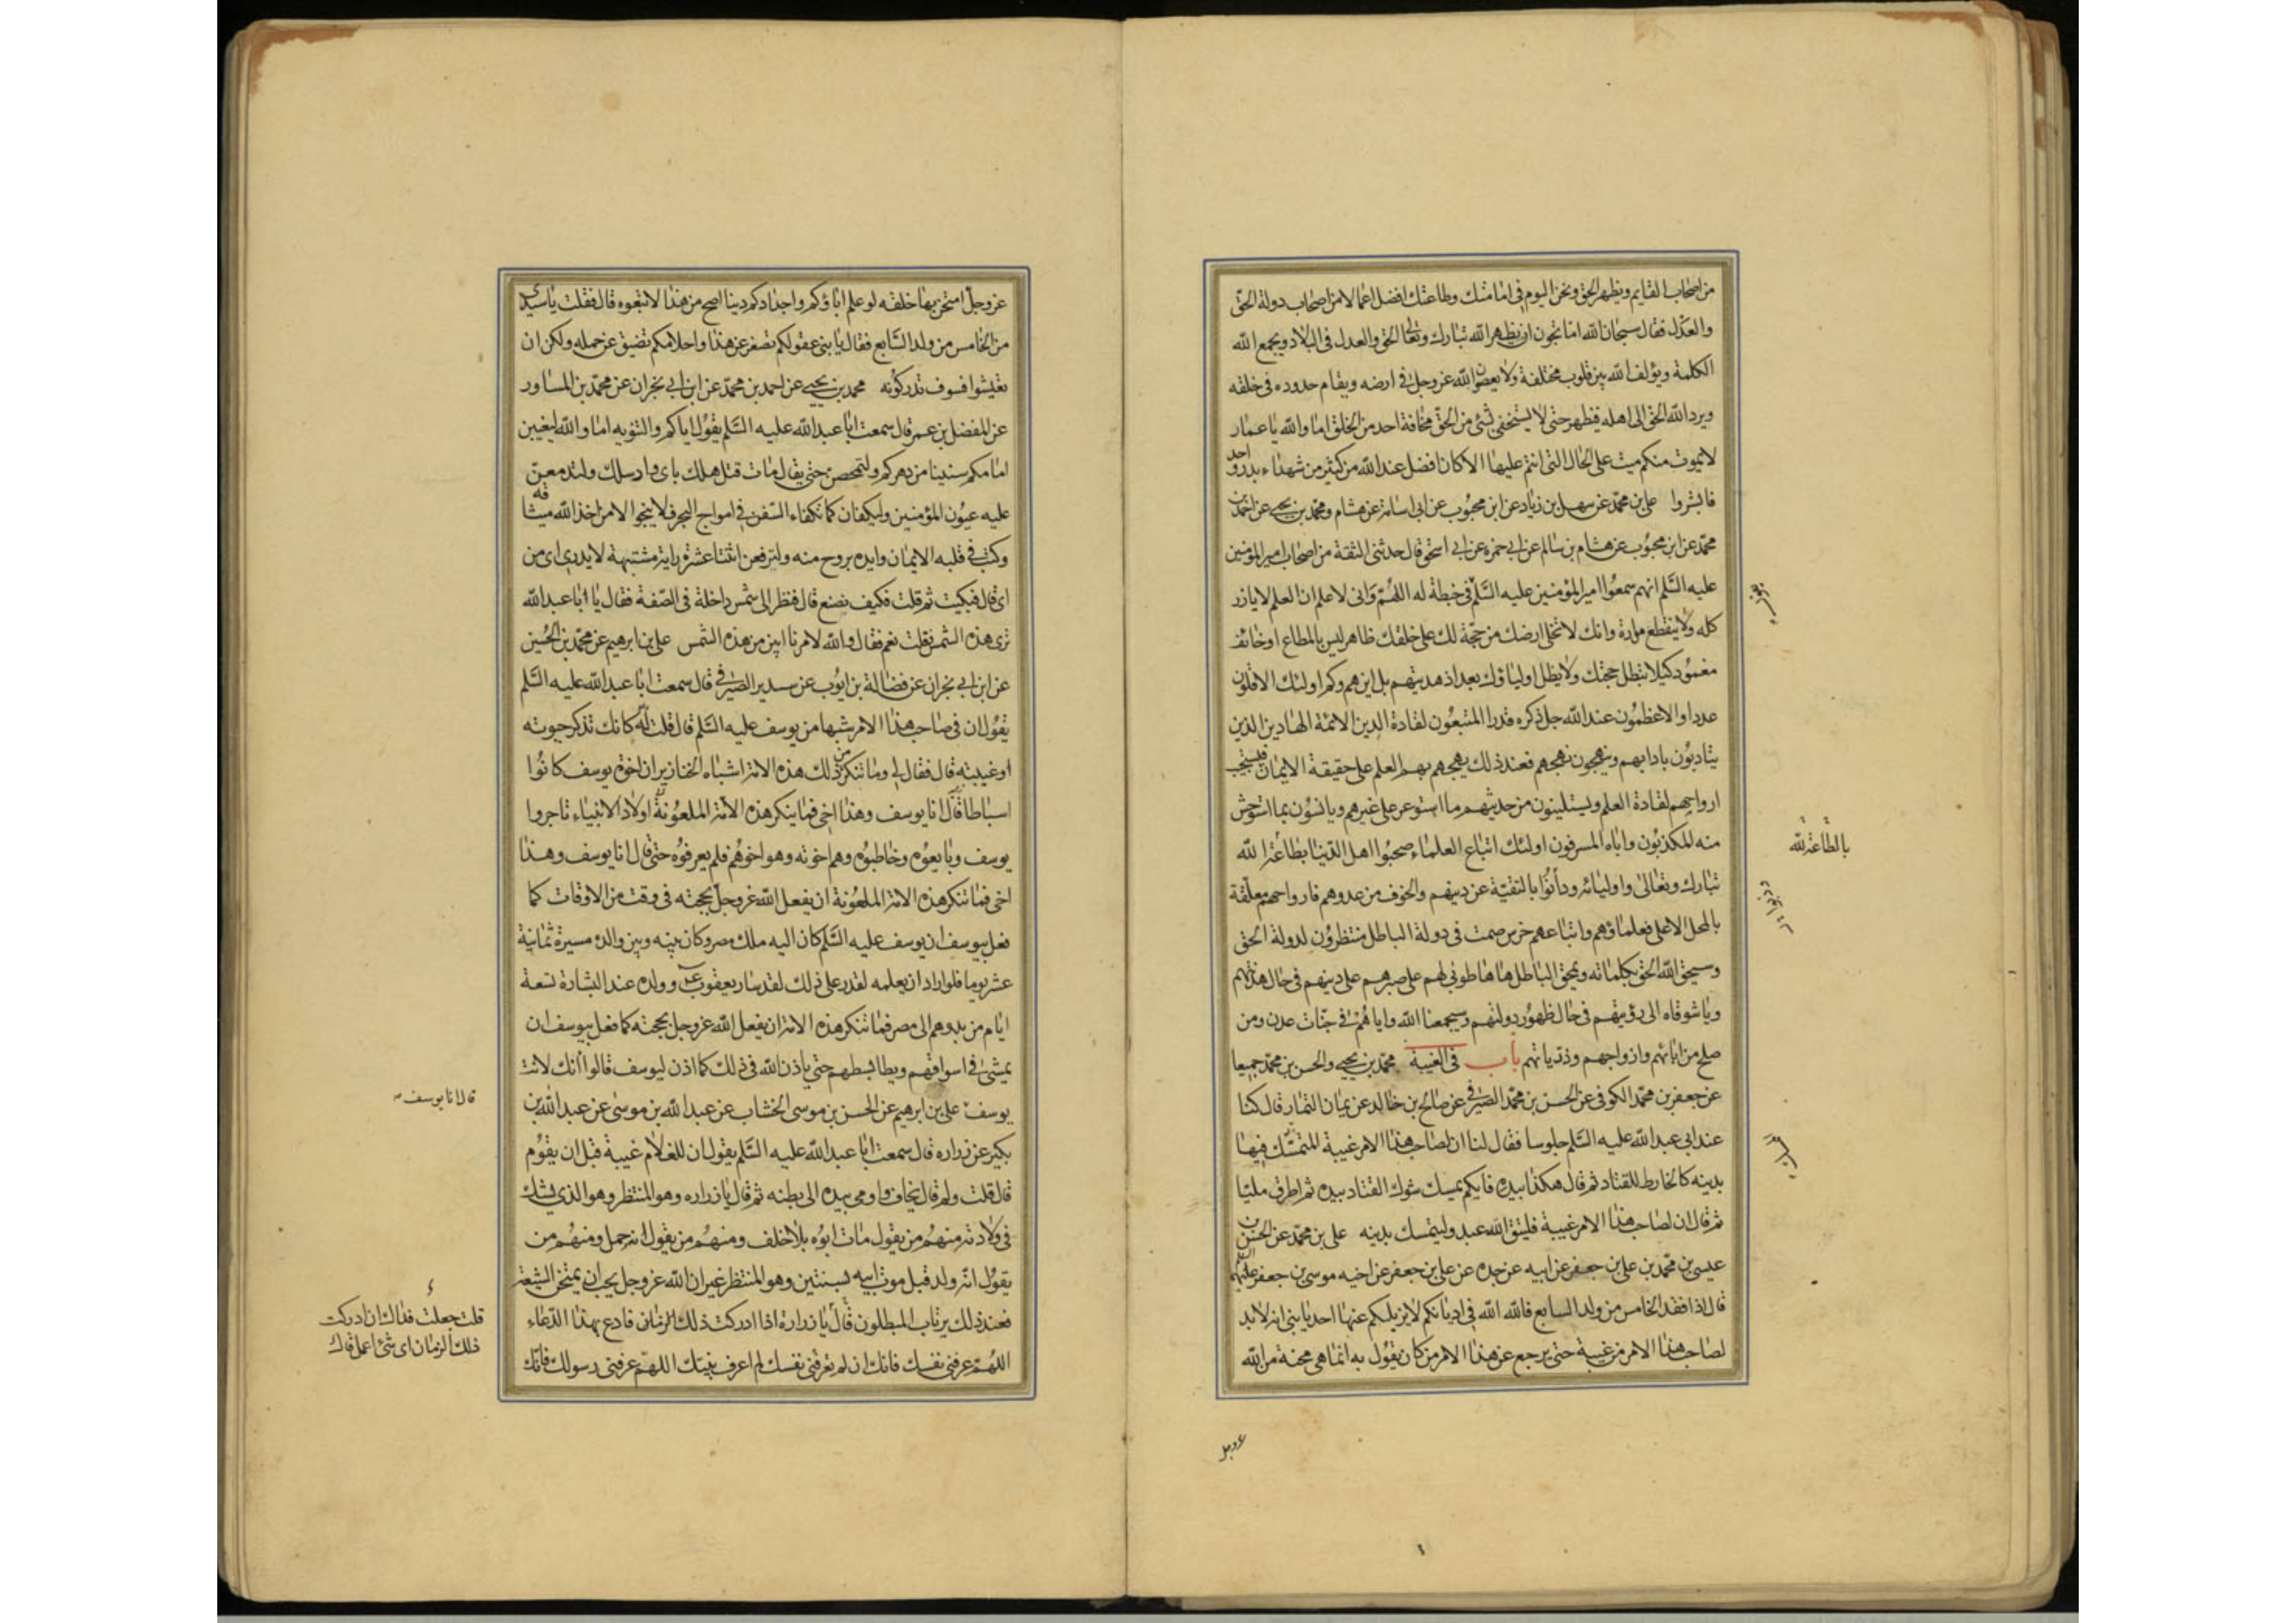 من اصحاب القايم ويظهر الحق ونحن اليوم في امامتك وطاعتك افضل اعمالا من اصحاب دولة الحق
والعدل فقال سبحان الله اما تحبون ان يظهر الله تبارك وتعالى الحق والعدل في البلاد ويجمع الله
الكلمة ويؤلف الله بين قلوب مختلفة ولا يعصوا الله عز وجل في ارضه ويقام حدوده في خلقه
ويرد الله الحق الى اهله فيظهر حتى لا يستخفى بشئ من الحق مخافة احد من الخلق اما والله يا عمار
لا يموت منكم ميت على الحال التي انتم عليها الا كان افضل عند الله من كثير من شهداء بدر واحد
فابشروا علي بن محمد عن سهل بن زياد عن ابن محبوب عن ابي اسامة عن هشام ومحمد بن يحيى عن احمد بن
محمد عن ابن محبوب عن هشام بن سالم عن ابي حمزة عن ابي اسحق قال حدثني الثقة من اصحاب امير المؤمنين
عليه السلم انهم سمعوا امير المؤمنين عليه السلم في خطبة له اللهم واني لاعلم ان العلم لا يازر
كله ولا ينقطع مواده وانك لا تخلي ارضك من حجة لك على خلقك ظاهر ليس بالمطاع او خائف
مغمود كيلا تبطل حجتك ولا يظل اولياؤك بعد اذ هديتهم بل اين هم وكم اولئك الاقلون
عددا والاعظمون عند الله جل ذكره قدرا المتبعون لقادة الدين الائمة الهادين الذين
يتادبون بادابهم وينهجون نهجهم فعند ذلك يهجم بهم العلم على حقيقة الايمان فيستجيب
ارواحهم لقادة العلم ويستلينون من حديثهم ما استوعر على غيرهم ويانسون بما استوحش
منه المكذبون واباه المسرفون اولئك اتباع العلماء صحبوا اهل الدنيا بطاعة الله
تبارك وتعالى واوليائه ودانوا بالتقية عن دينهم والخوف من عدوهم فارواحهم معلقة
بالمحل الاعلى فعلماؤهم واتباعهم خرس صمت في دولة الباطل منتظرون لدولة الحق
وسيحق الله الحق بكلماته ويمحق الباطل ها ها طوبى لهم على صبرهم على دينهم في حال هدنتهم
ويا شوقاه الى رؤيتهم في حال ظهور دولتهم وسيجمعنا الله واياهم في جنات عدن ومن
صلح من ابائهم وازواجهم وذرياتهم باب في الغيبة محمد بن يحيى والحسن بن محمد جميعا
عن جعفر بن محمد الكوفي عن الحسن بن محمد الصيرفي عن صالح بن خالد عن يمان التمار قال كنا
عند ابي عبد الله عليه السلم جلوسا فقال لنا ان لصاحب هذا الامر غيبة المتمسك فيها
بدينه كالخارط للقتاد ثم قال هكذا بيده فايكم يمسك شوك القتاد بيده ثم اطرق مليا
ثم قال ان لصاحب هذا الامر غيبة فليتق الله عبد وليتمسك بدينه علي بن محمد عن الحسن بن
عيسى بن محمد بن علي بن جعفر عن ابيه عن جده عن علي بن جعفر عن اخيه موسى بن جعفر عليهما السلم
قال اذا فقد الخامس من ولد السابع فالله الله في اديانكم لا يزيلكم عنها احد يا بني انه لا بد
لصاحب هذا الامر من غيبة حتى يرجع عن هذا الامر من كان يقول به انما هي محنة من الله
بالطاعة لله
عز وجل
عز وجل امتحن بها خلقه لو علم اباؤكم واجدادكم دينا اصح من هذا لاتبعوه قال فقلت يا سيدي
من الخامس من ولد السابع فقال يا بني عقولكم تصغر عن هذا واحلامكم تضيق عن حمله ولكن ان
تعيشوا فسوف تدركونه محمد بن يحيى عن احمد بن محمد عن ابن ابي نجران عن محمد بن المساور
عن المفضل بن عمر قال سمعت ابا عبد الله عليه السلم يقول اياكم والتنويه اما والله ليغيبن
امامكم سنينا من دهركم ولتمحصن حتى يقال مات قتل هلك باي واد سلك ولتدمعن
عليه عيون المؤمنين وليكفان كما تكفاء السفن في امواج البحر فلا ينجوا الا من اخذ الله ميثاقه
وكتب في قلبه الايمان وايده بروح منه ولترفعن اثنتا عشرة راية مشتبهة لا يدرى اى من
اى قال فبكيت ثم قلت فكيف نصنع قال فنظر الى شمس داخلة في الصفة فقال يا ابا عبد الله
ترى هذه الشمس قلت نعم فقال والله لامرنا ابين من هذه الشمس علي بن ابرهيم عن محمد بن الحسين
عن ابن ابي نجران عن فضالة بن ايوب عن سدير الصيرفي قال سمعت ابا عبد الله عليه السلم
يقول ان في صاحب هذا الامر شبها من يوسف عليه السلم قال قلت له كانك تذكر حيوته
او غيبته قال فقال لي وما تنكر من ذلك هذه الامة اشباه الخنازير ان اخوة يوسف كانوا
اسباطا قال انا يوسف وهذا اخي فما ينكر هذه الامة الملعونة اولاد الانبياء تاجروا
يوسف وبايعوه وخاطبوه وهم اخوته وهو اخوهم فلم يعرفوه حتى قال انا يوسف وهذا
اخي فما تنكر هذه الامة الملعونة ان يفعل الله عز وجل بحجته في وقت من الاوقات كما
فعل بيوسف ان يوسف عليه السلم كان اليه ملك مصر وكان بينه وبين والده مسيرة ثمانية
عشر يوما فلو اراد ان يعلمه لقدر على ذلك لقد سار يعقوب وولده عند البشارة تسعة
ايام من بدوهم الى مصر فما تنكر هذه الامة ان يفعل الله عز وجل بحجته كما فعل بيوسف ان
يمشى في اسواقهم ويطا بسطهم حتى ياذن الله في ذلك كما اذن ليوسف قالوا اانك لانت
يوسف علي بن ابرهيم عن الحسن بن موسى الخشاب عن عبد الله بن موسى عن عبد الله بن
بكير عن زراره قال سمعت ابا عبد الله عليه السلم يقول ان للغلام غيبة قبل ان يقوم
قال قلت ولم قال يخاف واومى بيده الى بطنه ثم قال يا زراره وهو المنتظر وهو الذي يشك
في ولادته منهم من يقول مات ابوه بلا خلف ومنهم من يقول انه حمل ومنهم من
يقول انه ولد قبل موت ابيه بسنتين وهو المنتظر غير ان الله عز وجل يحب ان يمتحن الشيعة
فعند ذلك يرتاب المبطلون قال يا زرارة اذا ادركت ذلك الزمان فادع بهذا الدعاء
اللهم عرفني نفسك فانك ان لم تعرفني نفسك لم اعرف نبيك اللهم عرفني رسولك فانك
قال انا يوسف
قلت جعلت فداك ان ادركت
ذلك الزمان اى شئ اعمل قال